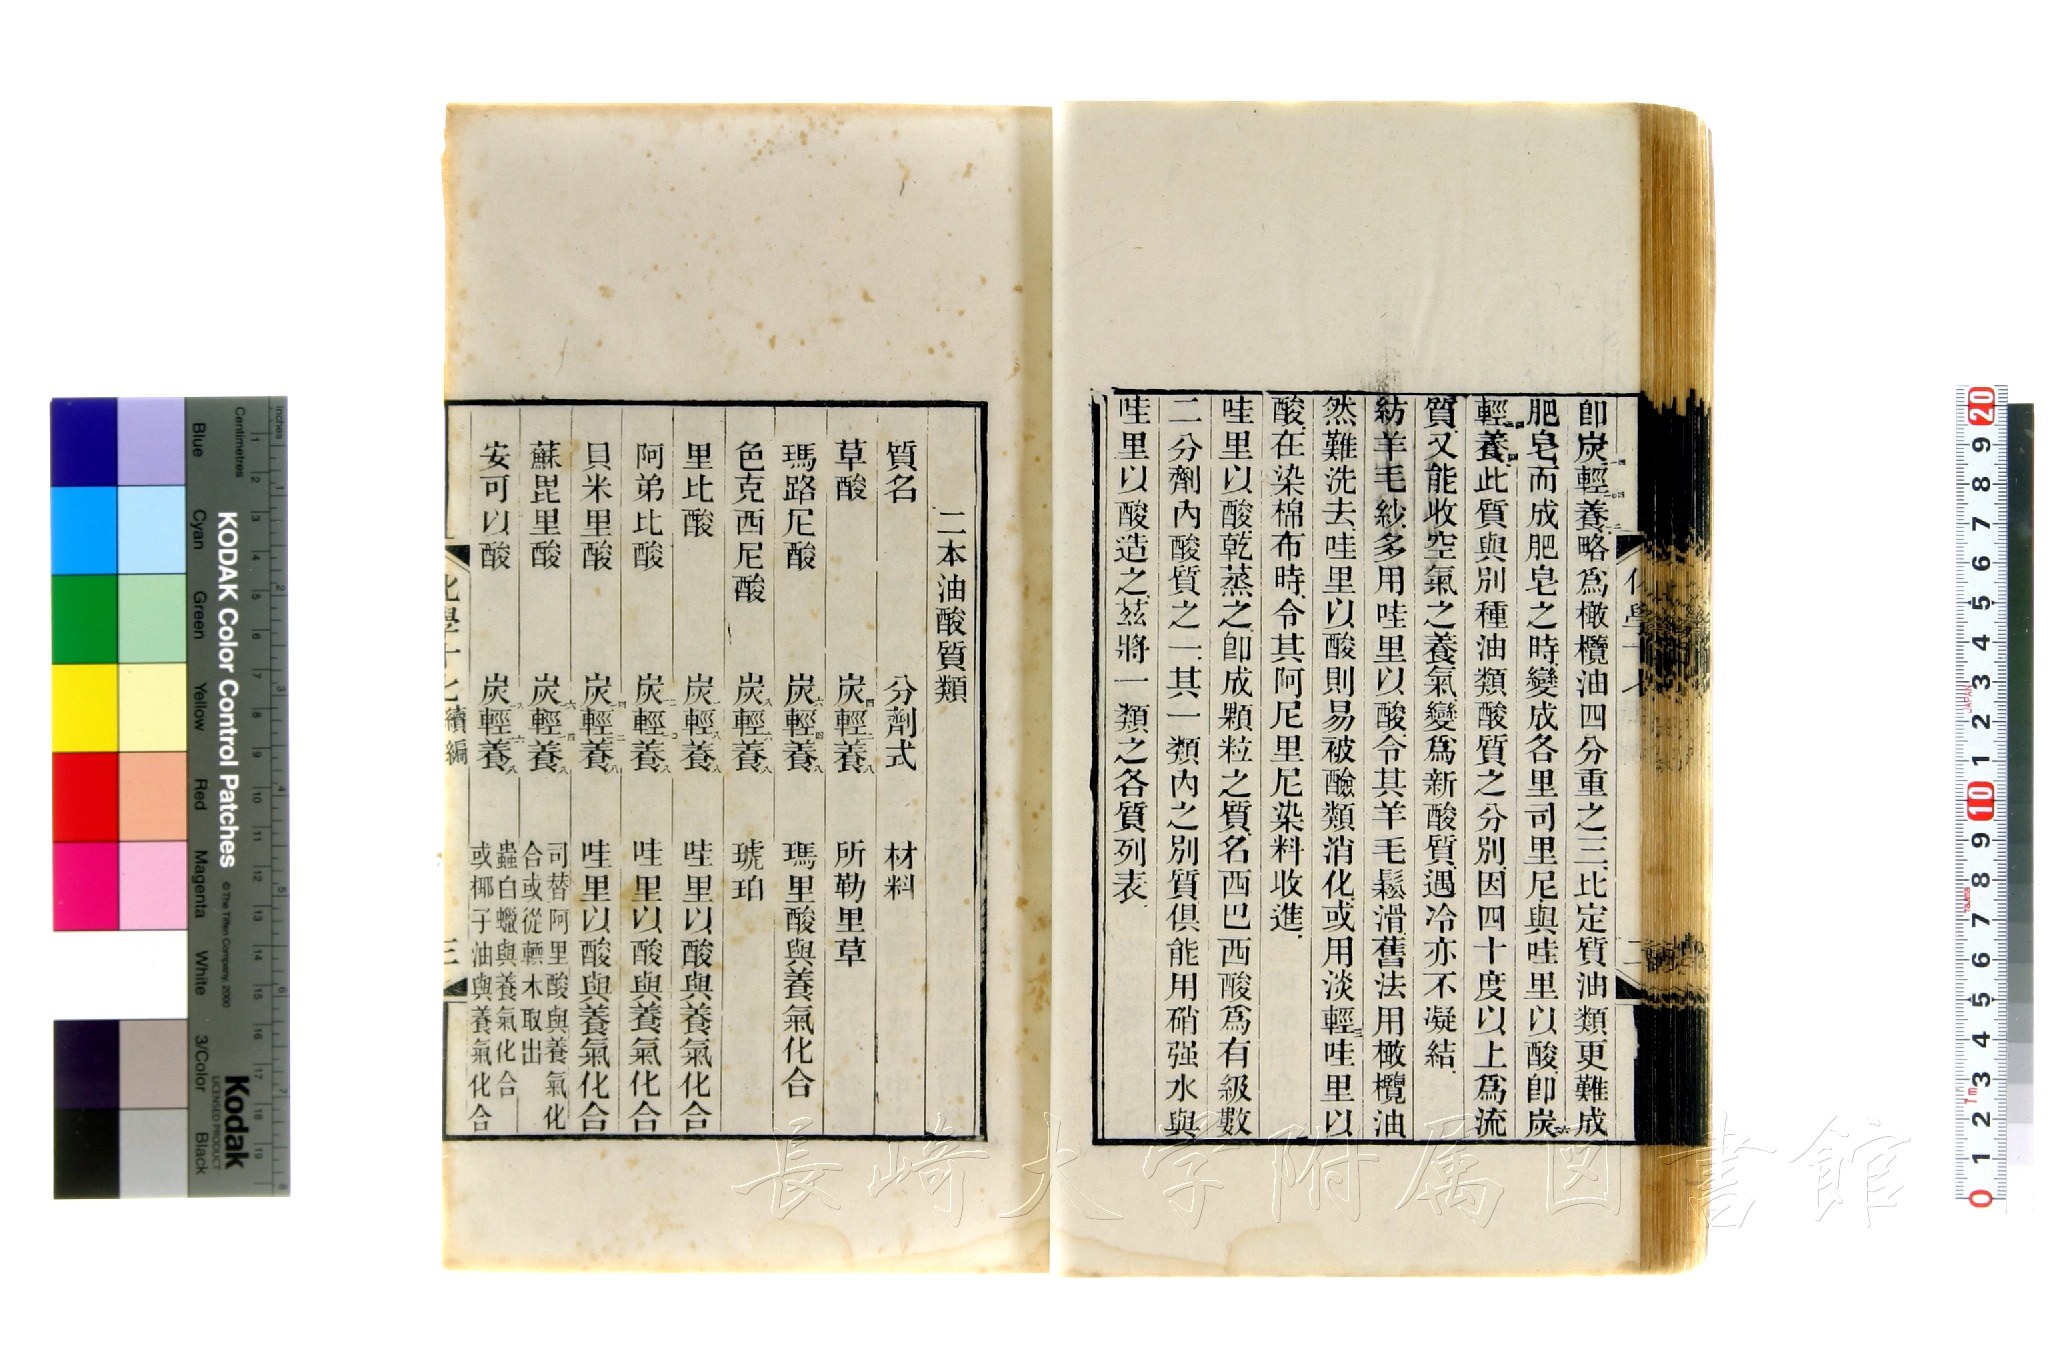 卽炭輕養略爲橄欖油四分重之三比定質油類更難成
肥皂而成肥皂之時變成各里司里尼與哇里以酸卽炭
輕養此質與別種油類酸質之分別因四十度以上爲流
質又能收空氣之養氣變爲新酸質遇冷亦不凝結
紡羊毛紗多用哇里以酸令其羊毛鬆滑舊法用橄欖油
然難洗去哇里以酸則易被醶類消化或用淡輕三哇里以
酸在染棉布時令其阿尼里尼染料收進
哇里以酸乾蒸之卽成顆粒之質名西巴西酸爲有級數
二分劑內酸質之一其一類內之別質俱能用硝强水與
哇里以酸造之玆將一類之各質列表
化學十七
二
二本油酸質類
質名 分劑式 材料
草酸 炭四輕二養八 所勒里草
瑪路尼酸 炭六輕四養八 瑪里酸與養氣化合
色克西尼酸 炭八輕六養八 琥珀
里比酸 炭輕八養八 哇里以酸與養氣化合
阿弟比酸 炭輕養八 哇里以酸與養氣化合
貝米里酸 炭輕養八 哇里以酸與養氣化合
蘇毘里酸 炭輕養八 司替阿里酸與養氣化
合或從輭木取出
安可以酸 炭輕養八 蟲白蠟與養氣化合
或椰子油與養氣化合
化學十七續編
三
長崎大学附属図書館
KODAK Color Control Patches
© The Tiffen Company, 2000
Kodak
LICENSED PRODUCT
Inches
Centimetres
Blue
Cyan
Green
Yellow
Red
Magenta
White
3/Color
Black